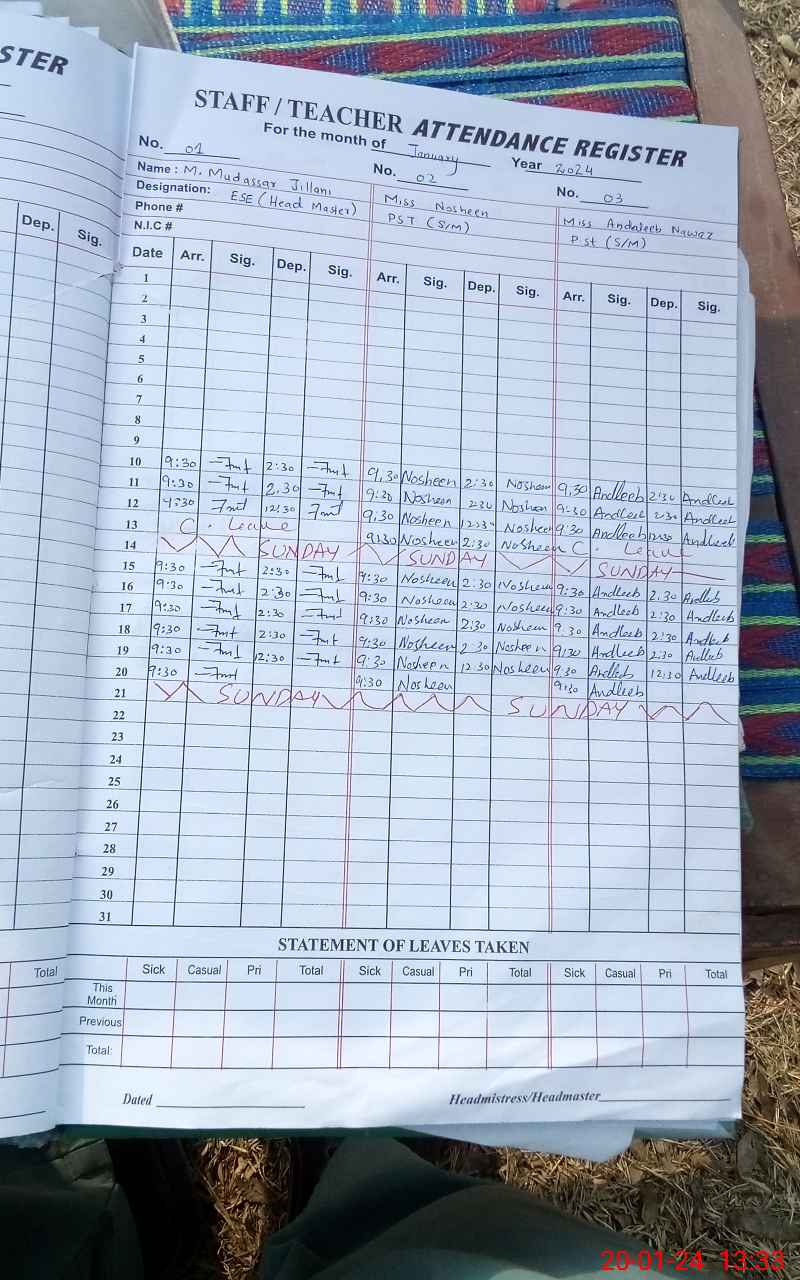 STER
STAFF / TEACHER ATTENDANCE REGISTER
For the month of January Year 2024
No. 01 No. 02 No. 03
Name : M. Mudassar Jillani Miss Nosheen Miss Andaleeb Nawaz
Designation: ESE (Head Master) PST (S/M) P.st (S/M)
Phone #
N.I.C #
Dep. Sig.
Date Arr. Sig. Dep. Sig. Arr. Sig. Dep. Sig. Arr. Sig. Dep. Sig.
1
2
3
4
5
6
7
8
9
10 9:30 2:30 9,30 Nosheen 2:30 Nosheen 9,30 Andleeb 2:30 Andleeb
11 9:30 2,30 9:30 Nosheen 2:30 Nosheen 9:30 Andleeb 2:30 Andleeb
12 9:30 12:30 9,30 Nosheen 12:30 Nosheen 9:30 Andleeb 12:30 Andleeb
13 C. Leave 9:30 Nosheen 2:30 Nosheen C. Leave
14 SUNDAY SUNDAY SUNDAY
15 9:30 2:30 9:30 Nosheen 2:30 Nosheen 9:30 Andleeb 2:30 Andleeb
16 9:30 2:30 9:30 Nosheen 2:30 Nosheen 9:30 Andleeb 2:30 Andleeb
17 9:30 2:30 9:30 Nosheen 2:30 Nosheen 9:30 Andleeb 2:30 Andleeb
18 9:30 2:30 9:30 Nosheen 2:30 Nosheen 9:30 Andleeb 2:30 Andleeb
19 9:30 12:30 9:30 Nosheen 12:30 Nosheen 9:30 Andleeb 12:30 Andleeb
20 9:30 9:30 Nosheen 9:30 Andleeb
21 SUNDAY SUNDAY
22
23
24
25
26
27
28
29
30
31
STATEMENT OF LEAVES TAKEN
Total
Sick Casual Pri Total Sick Casual Pri Total Sick Casual Pri Total
This Month
Previous
Total:
Dated Headmistress/Headmaster
20-01-24 13:33